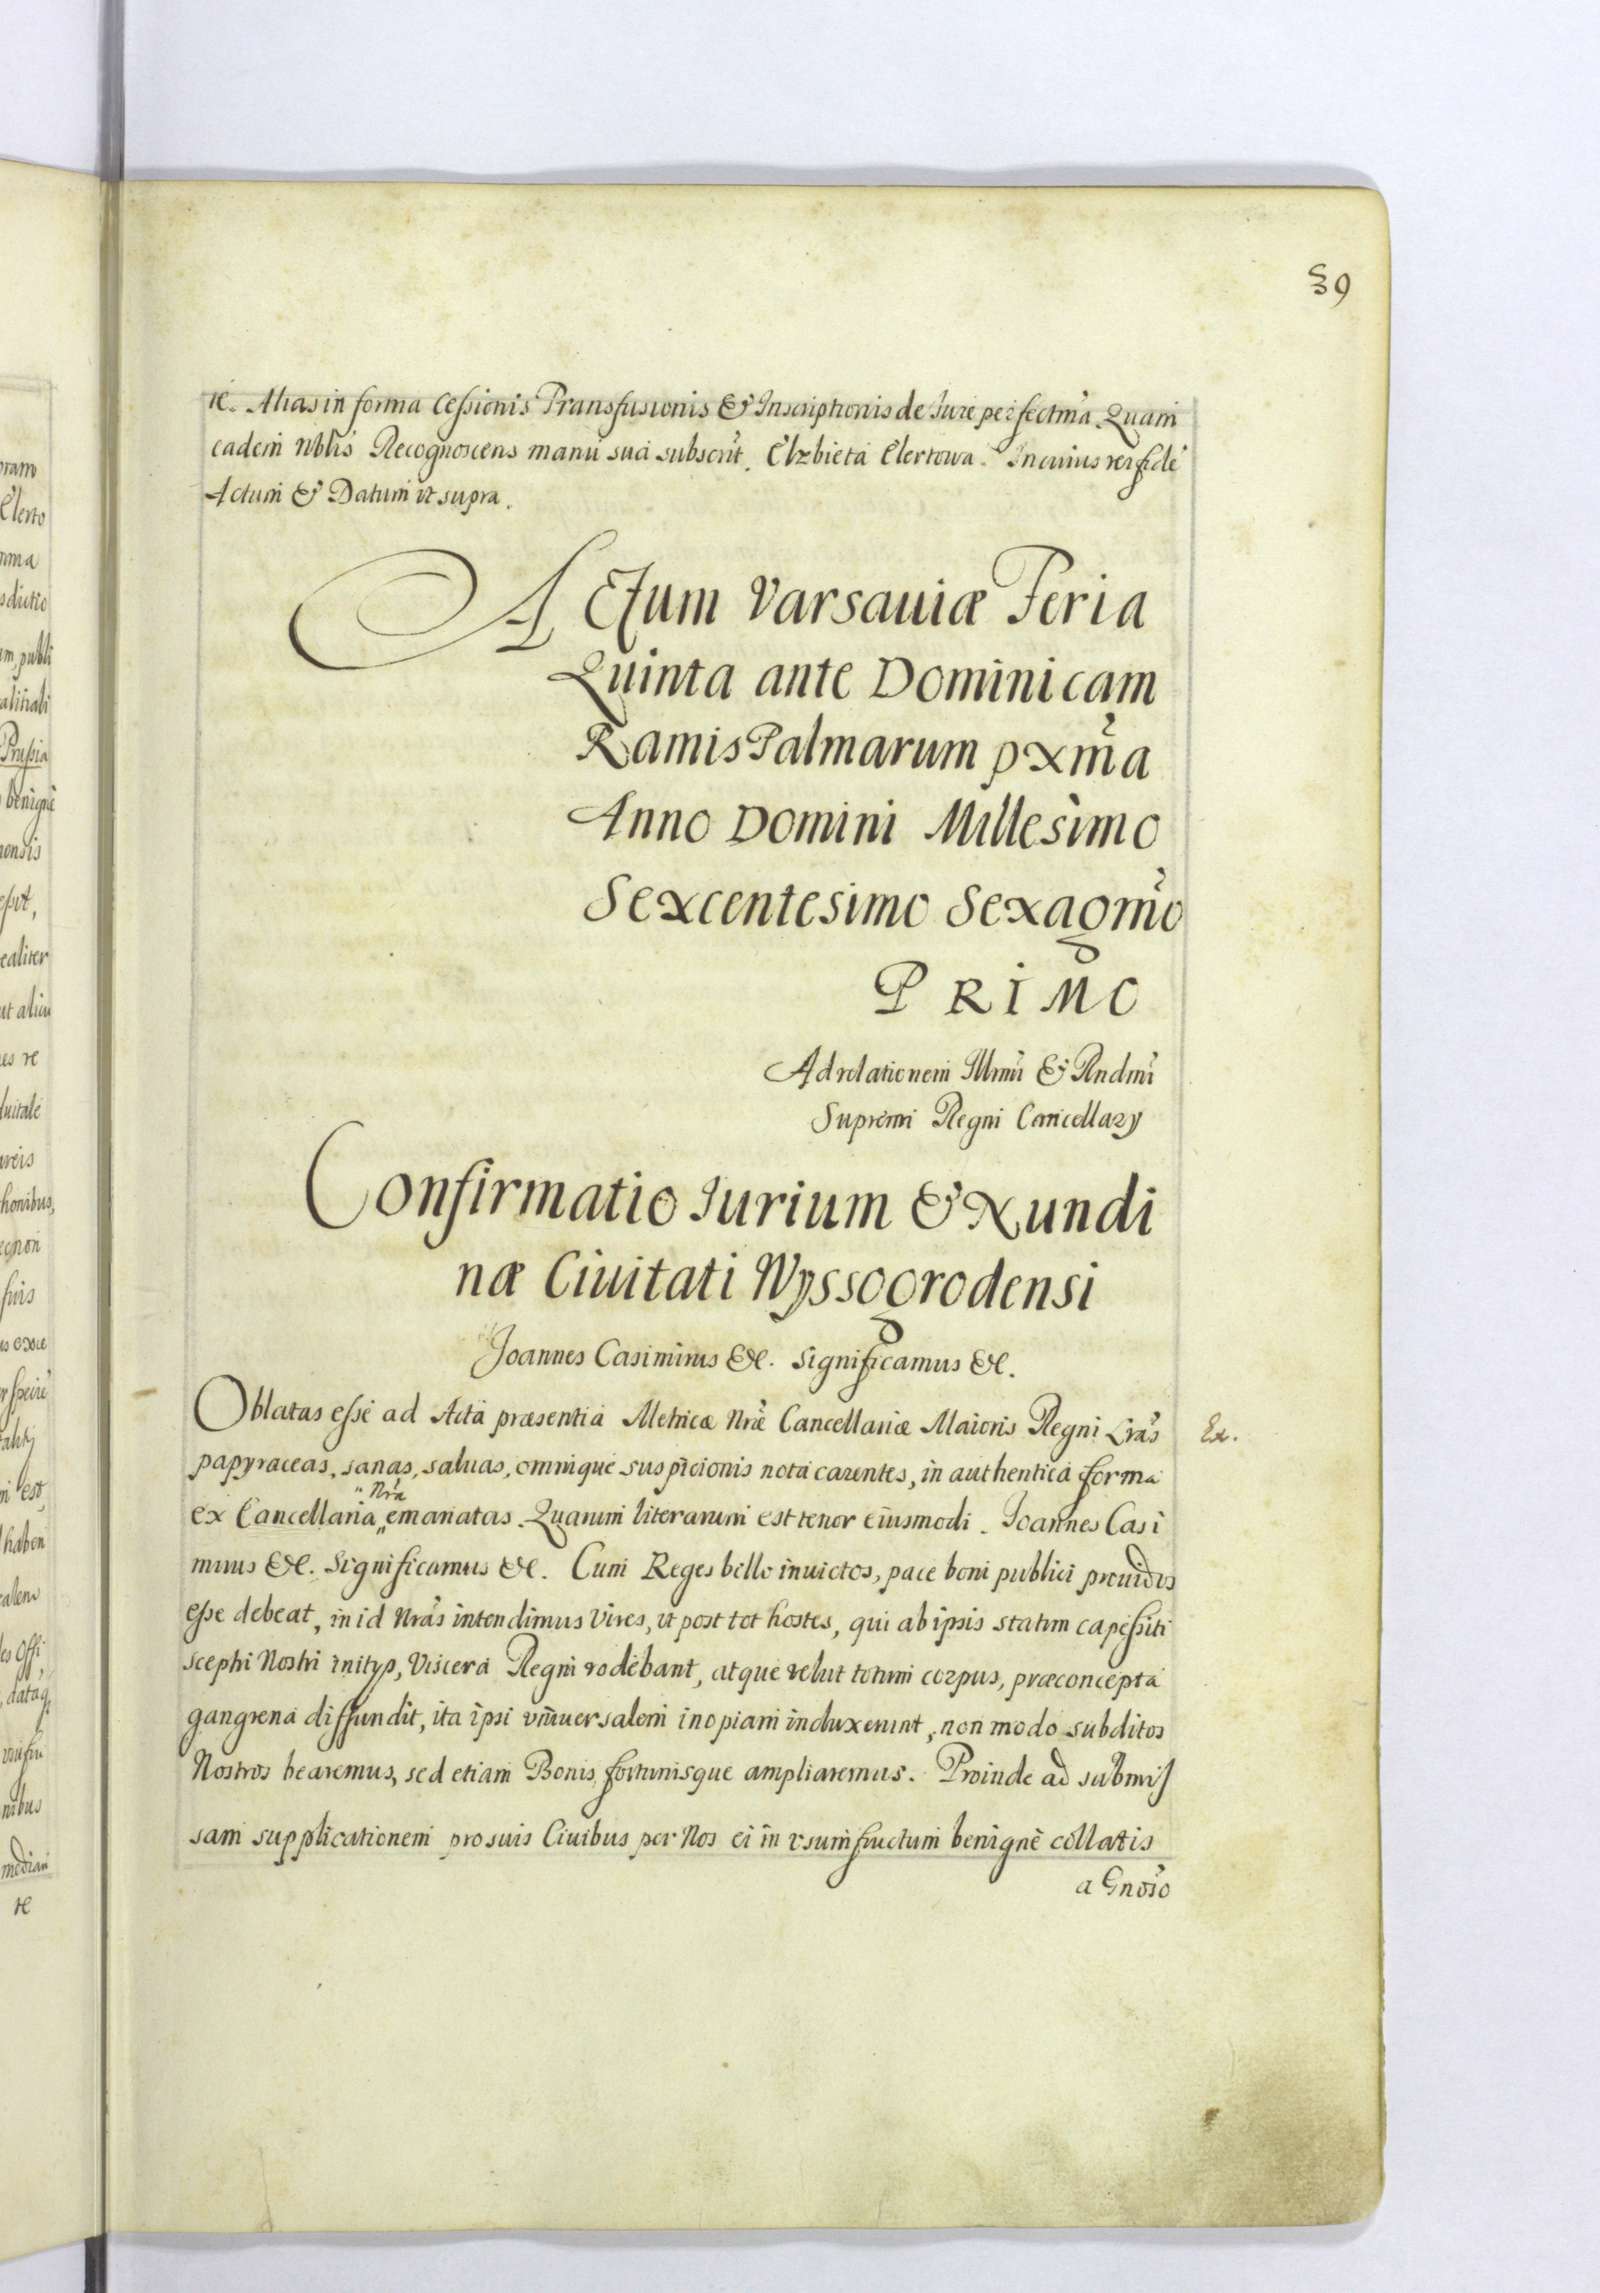 39
re. Alias in forma Cessionis Transfusionis & Inscriptionis de Iure perfectma. Quam
eadem Nblis Recognoscens manu sua subscrit. Elzbieta Elertowa. In cuius rei fidē
Actum & Datum ut supra.
ACtum Varsauiæ Feria
Quinta ante Dominicam
Ramis Palmarum pxma
Anno Domini Millesimo
Sexcentesimo Sexagmo
PRIMO
Ad relationem Illrmi & Rndmi
Supremi Regni Cancellary
Confirmatio Iurium & Nundi
næ Ciuitati Wyssogrodensi
Joannes Casimirus &c. Significamus &c.
Oblatas esse ad Acta præsentia Metricæ Nræ Cancellariæ Maioris Regni Lras
Ex.
papyraceas, sanas, saluas, omnique suspicionis nota carentes, in authentica forma
Nra
ex Cancellaria emanatas. Quarum literarum est tenor eiusmodi. Joannes Casi
mirus &c. Significamus &c. Cum Reges bello inuictos, pace boni publici prouidos
esse debeat, in id Nras intendimus vires, ut post tot hostes, qui ab ipsis statim capessiti
sceptri Nostri initys, Viscera Regni rodebant, atque velut totum corpus, præconcepta
gangrena diffundit, ita ipsi vniuersalem inopiam induxerunt, non modo subditos
Nostros bearemus, sed etiam Bonis fortunisque ampliaremus. Proinde ad submis
sam supplicationem pro suis Ciuibus per Nos ei in vsumfructum benignè collatis
a Gnoso